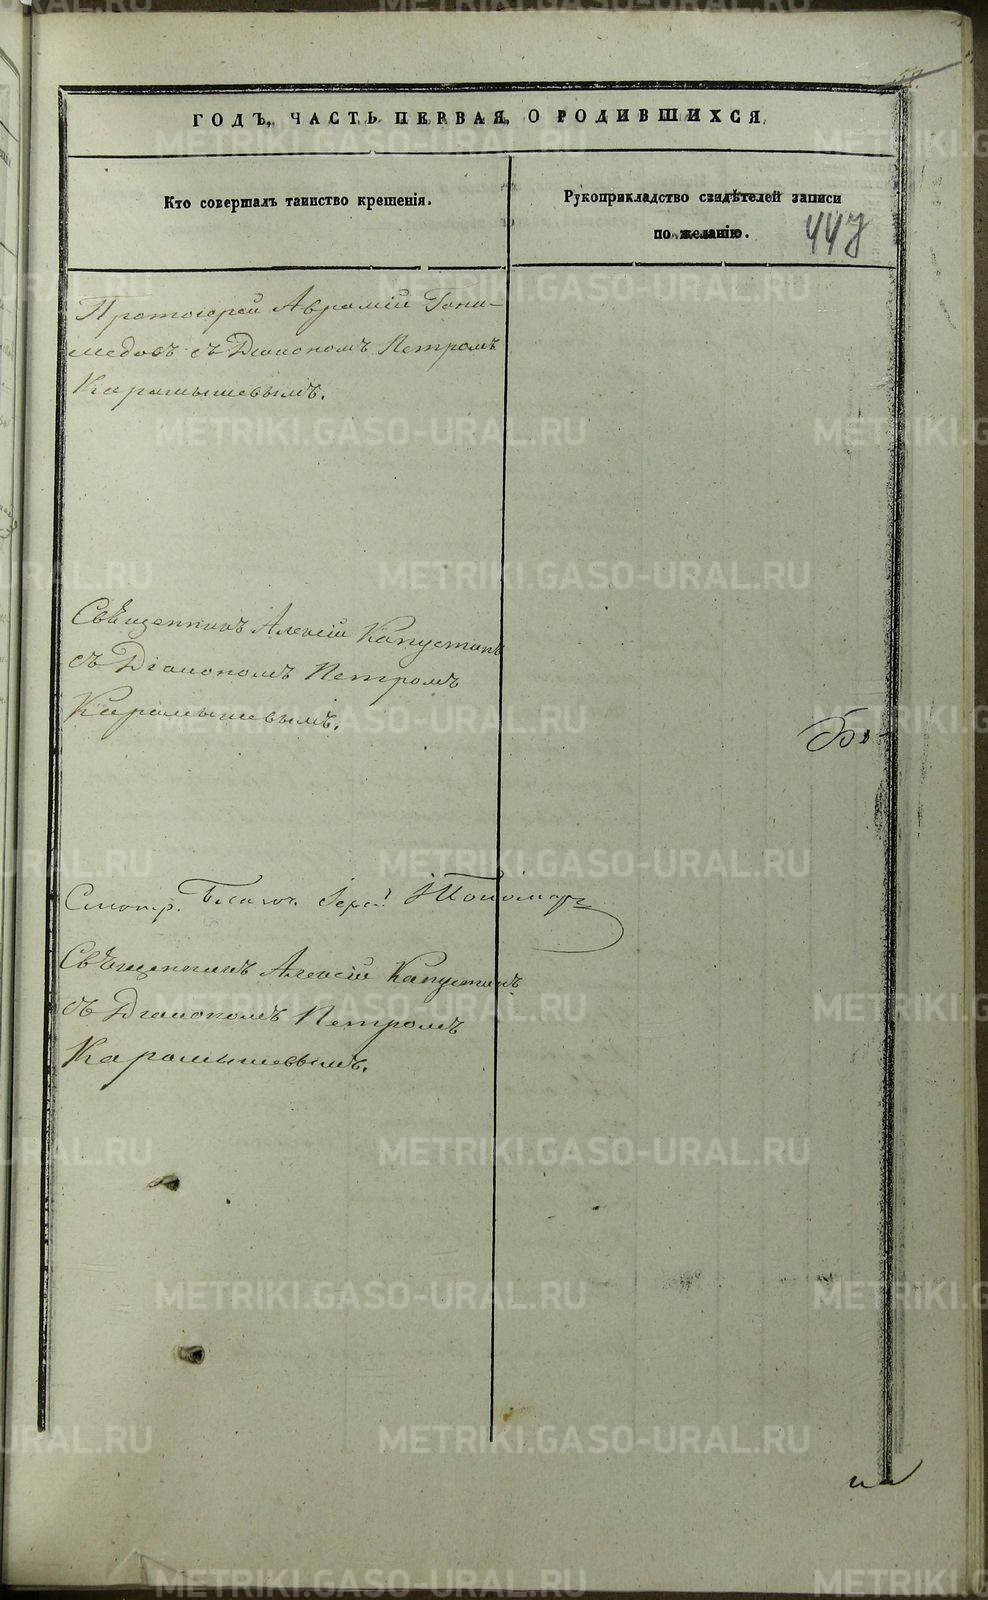 ГОДЪ, ЧАСТЬ ПЕРВАЯ, О РОДИВШИХСЯ.
Кто совершалъ таинство крещенія.
Рукоприкладство свидѣтелей записи
по желанію.
447
Протоіерей Аврамій Гани-
медовъ съ Діакономъ Петромъ
Карамышевымъ.
Священникъ Алексій Капустинъ
съ Діакономъ Петромъ
Карамышевымъ.
Смотр. Іерей
Священникъ Алексій Капустинъ
съ Діакономъ Петромъ
Карамышевымъ.
METRIKI.GASO-URAL.RU